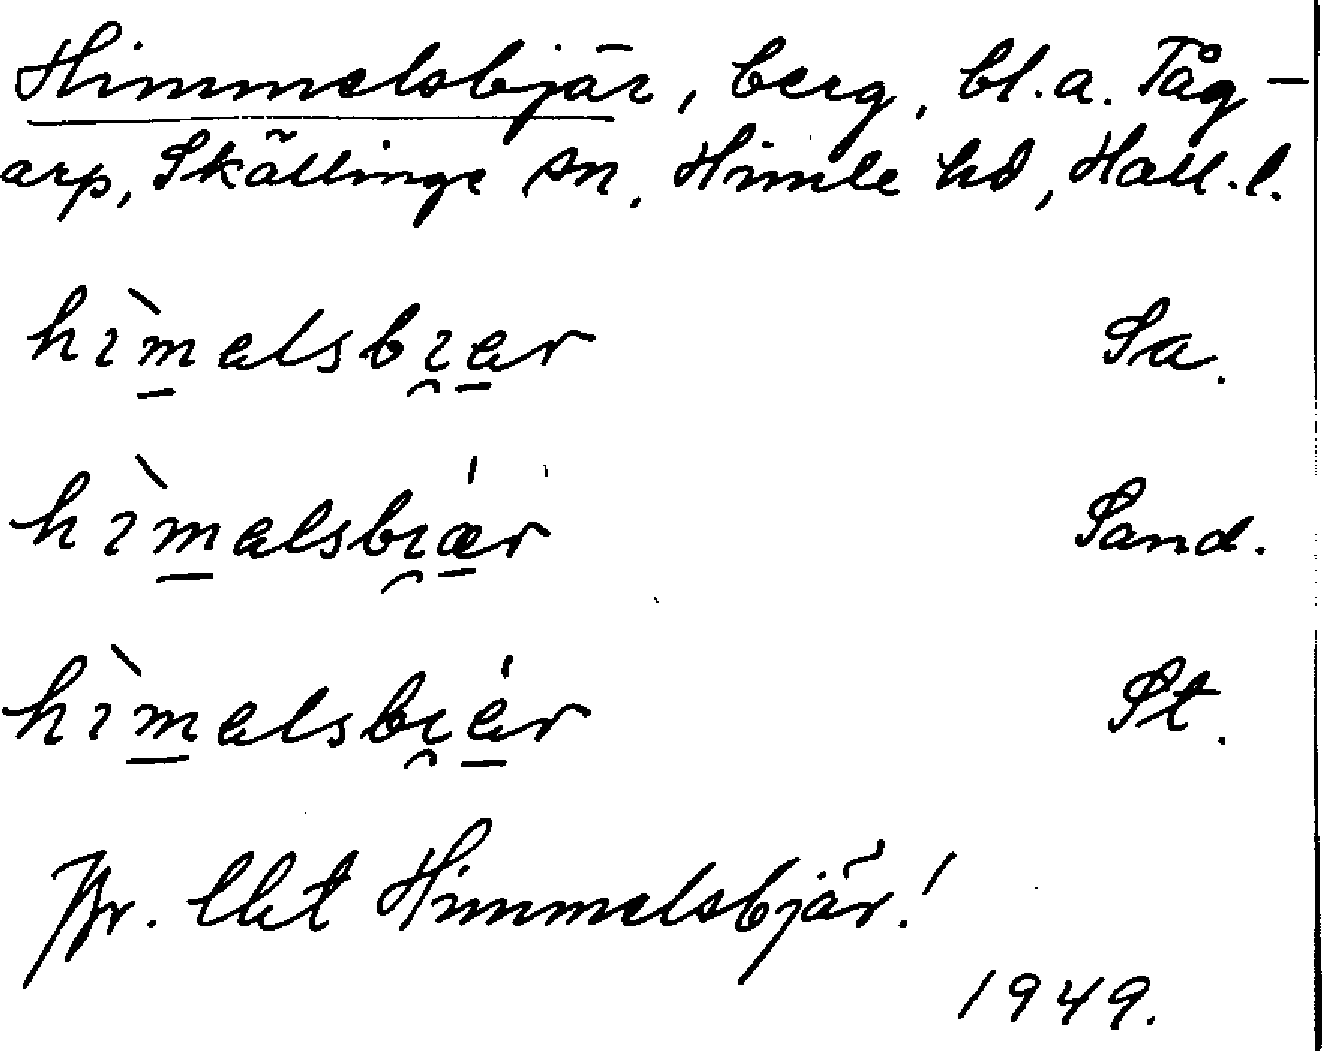 Himmelsbjär, berg, bl.a. Tåg-
arp, Skällinge sn, Himle hd, Hall. l.
hìm̲alsbı̯a̲r Sa.
hìm̲alsbı̯ǽ̲r Sand.
hìm̲alsbı̯é̲r St.
Pr. Himmelsbjär!
1949.